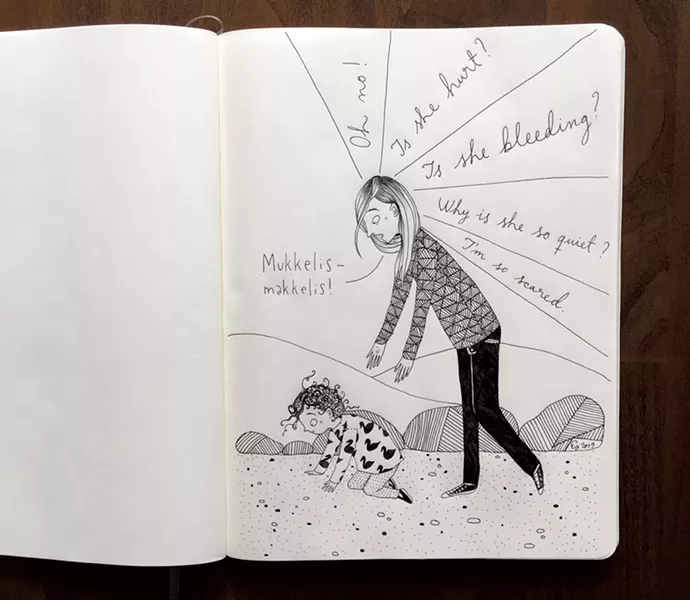 Oh no!
Is she hurt?
Is she bleeding?
Why is she so quiet?
I'm so scared.
Mukkelis-
makkelis!